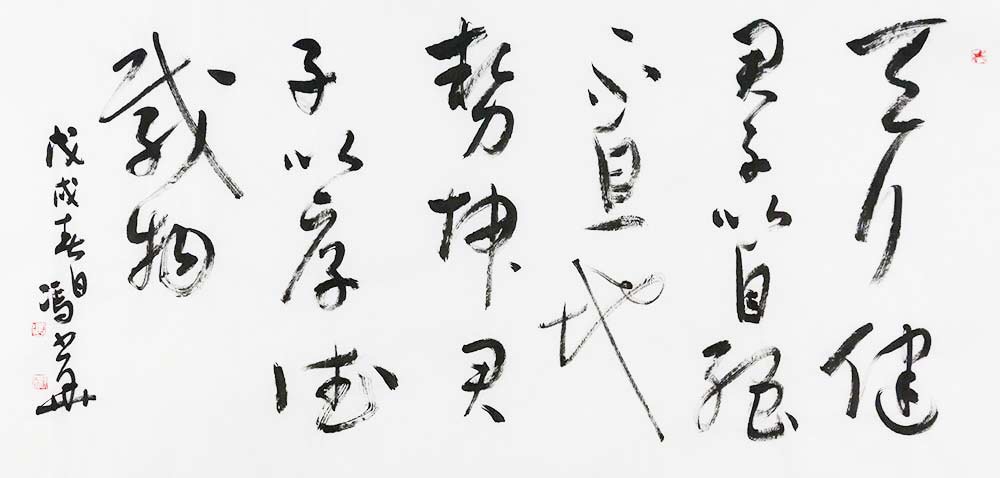 天行健
君子以自强
不息地
势坤君
子以厚德
载物
戊戌春日冯